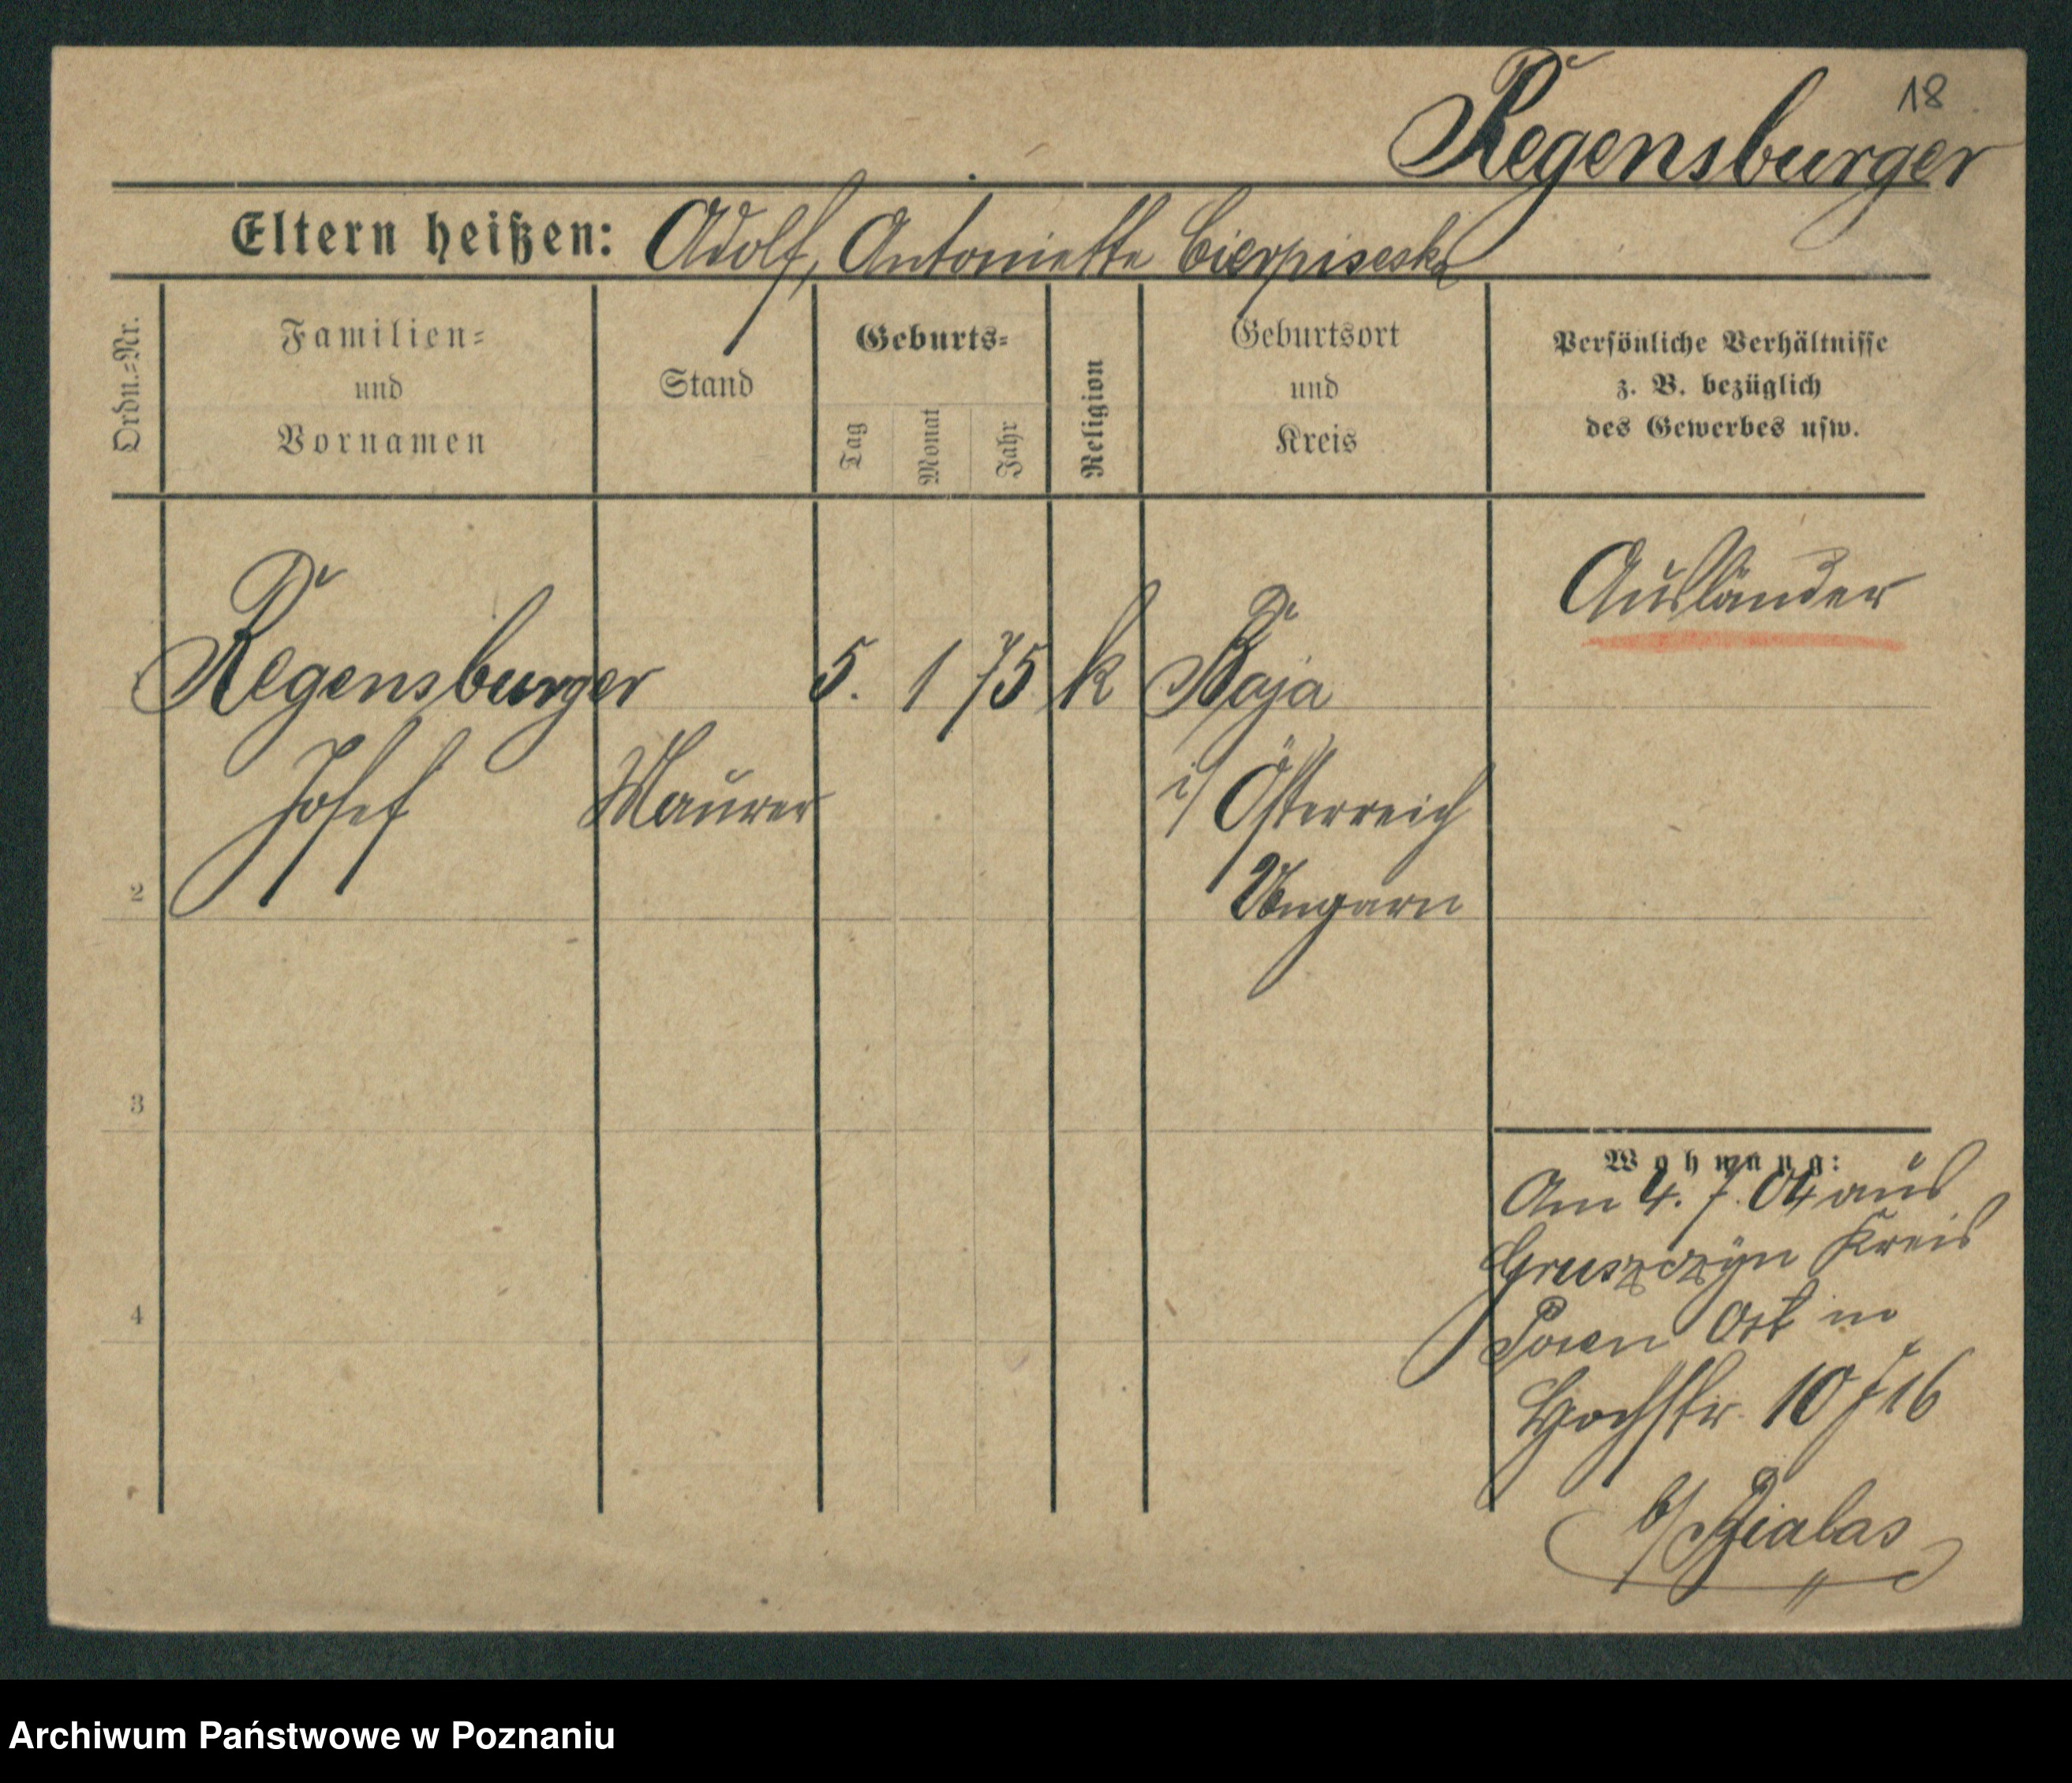 18
Regensburger
Eltern heißen: Adolf, Antoniette
Ordn.-Nr.
Familien-
und
Vornamen
Stand
Geburts-
Tag
Monat
Jahr
Religion
Geburtsort
und
Kreis
Persönliche Verhältnisse
z. B. bezüglich
des Gewerbes usw.
Ausländer
Regensburger 5. 1 75 k Baja
Josef Maurer i/ Österreich
Ungarn
2
3
4
Wohnung:
Am 4. 7. 04 aus
Gruszczyn Kreis
Posen Ost in
Hochstr. 10 J 16
b/ Bialas
Archiwum Państwowe w Poznaniu